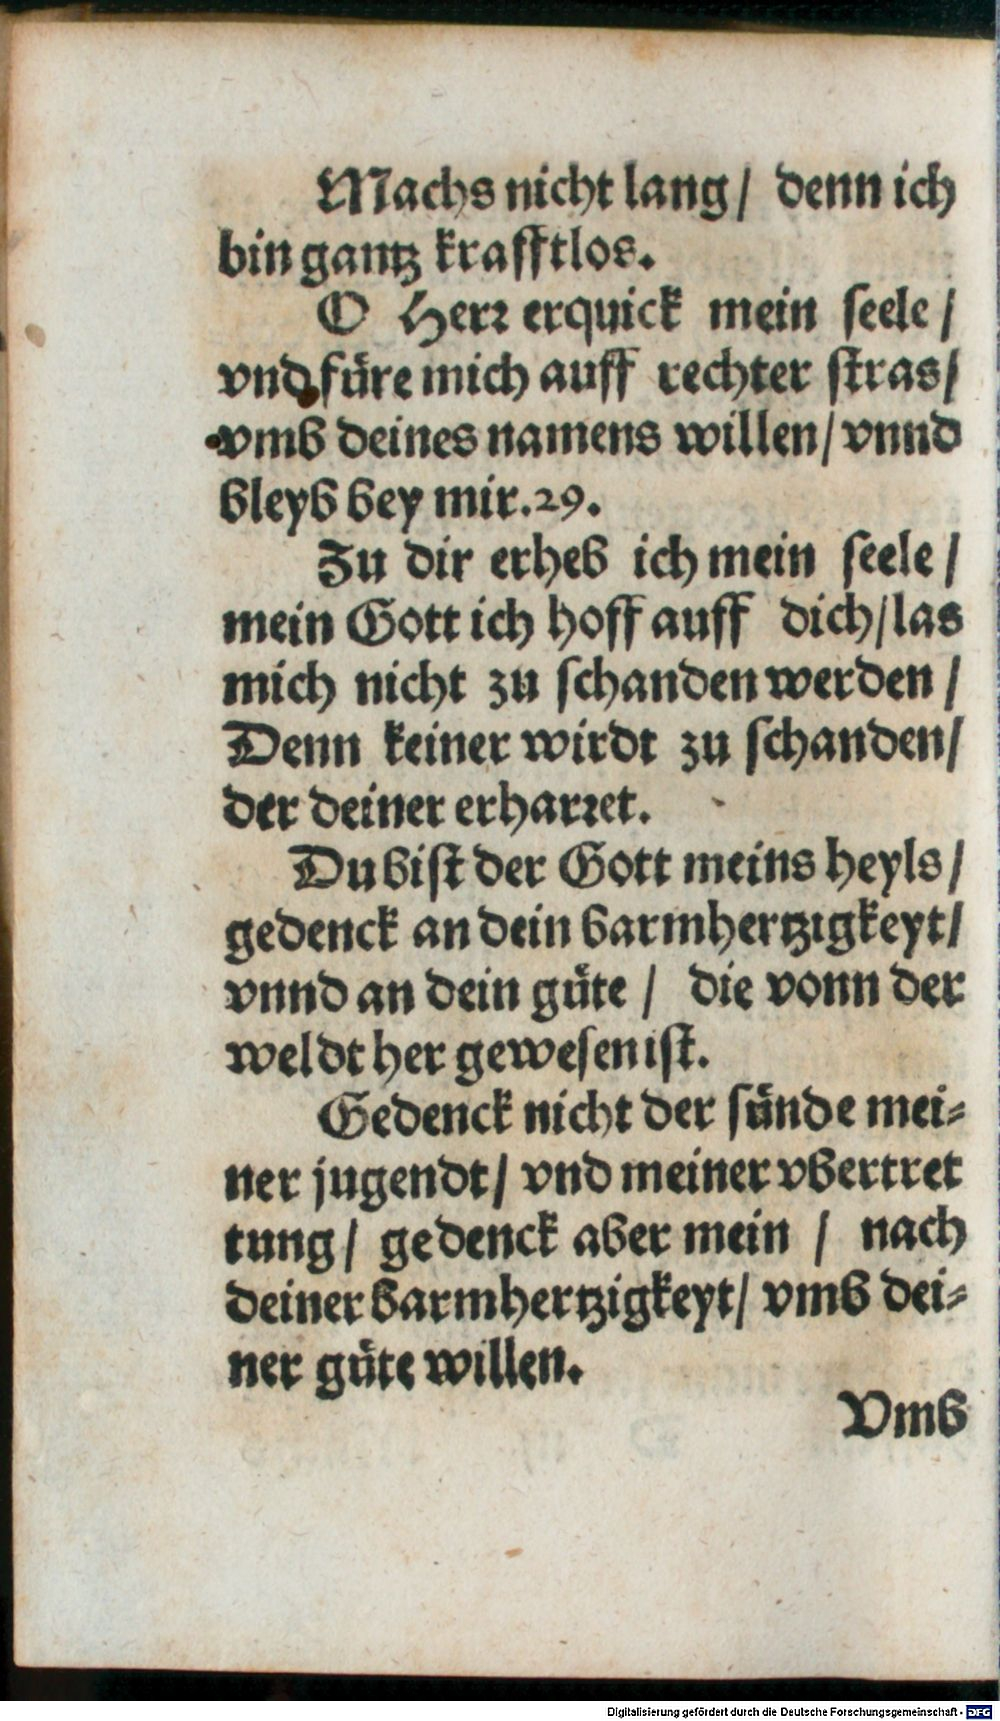 Machs nicht lang/ denn ich
bin gantz krafftlos.
O Herr erquick mein seele/
vnd füre mich auff rechter stras/
vmb deines namens willen/ vnnd
bleyb bey mir.29.
Zu dir erheb ich mein seele/
mein Gott ich hoff auff dich/las
mich nicht zu schanden werden/
Denn keiner wirdt zu schanden/
der deiner erharret.
Du bist der Gott meins heyls/
gedenck an dein barmhertzigkeyt/
vnnd an dein güte/ die vonn der
weldt her gewesen ist.
Gedenck nicht der sünde mei-
ner jugendt/ vnd meiner vbertret
tung/ gedenck aber mein / nach
deiner barmhertzigkeyt/ vmb dei-
ner güte willen.
Vmb
Digitalisierung gefördert durch die Deutsche Forschungsgemeinschaft - DFG